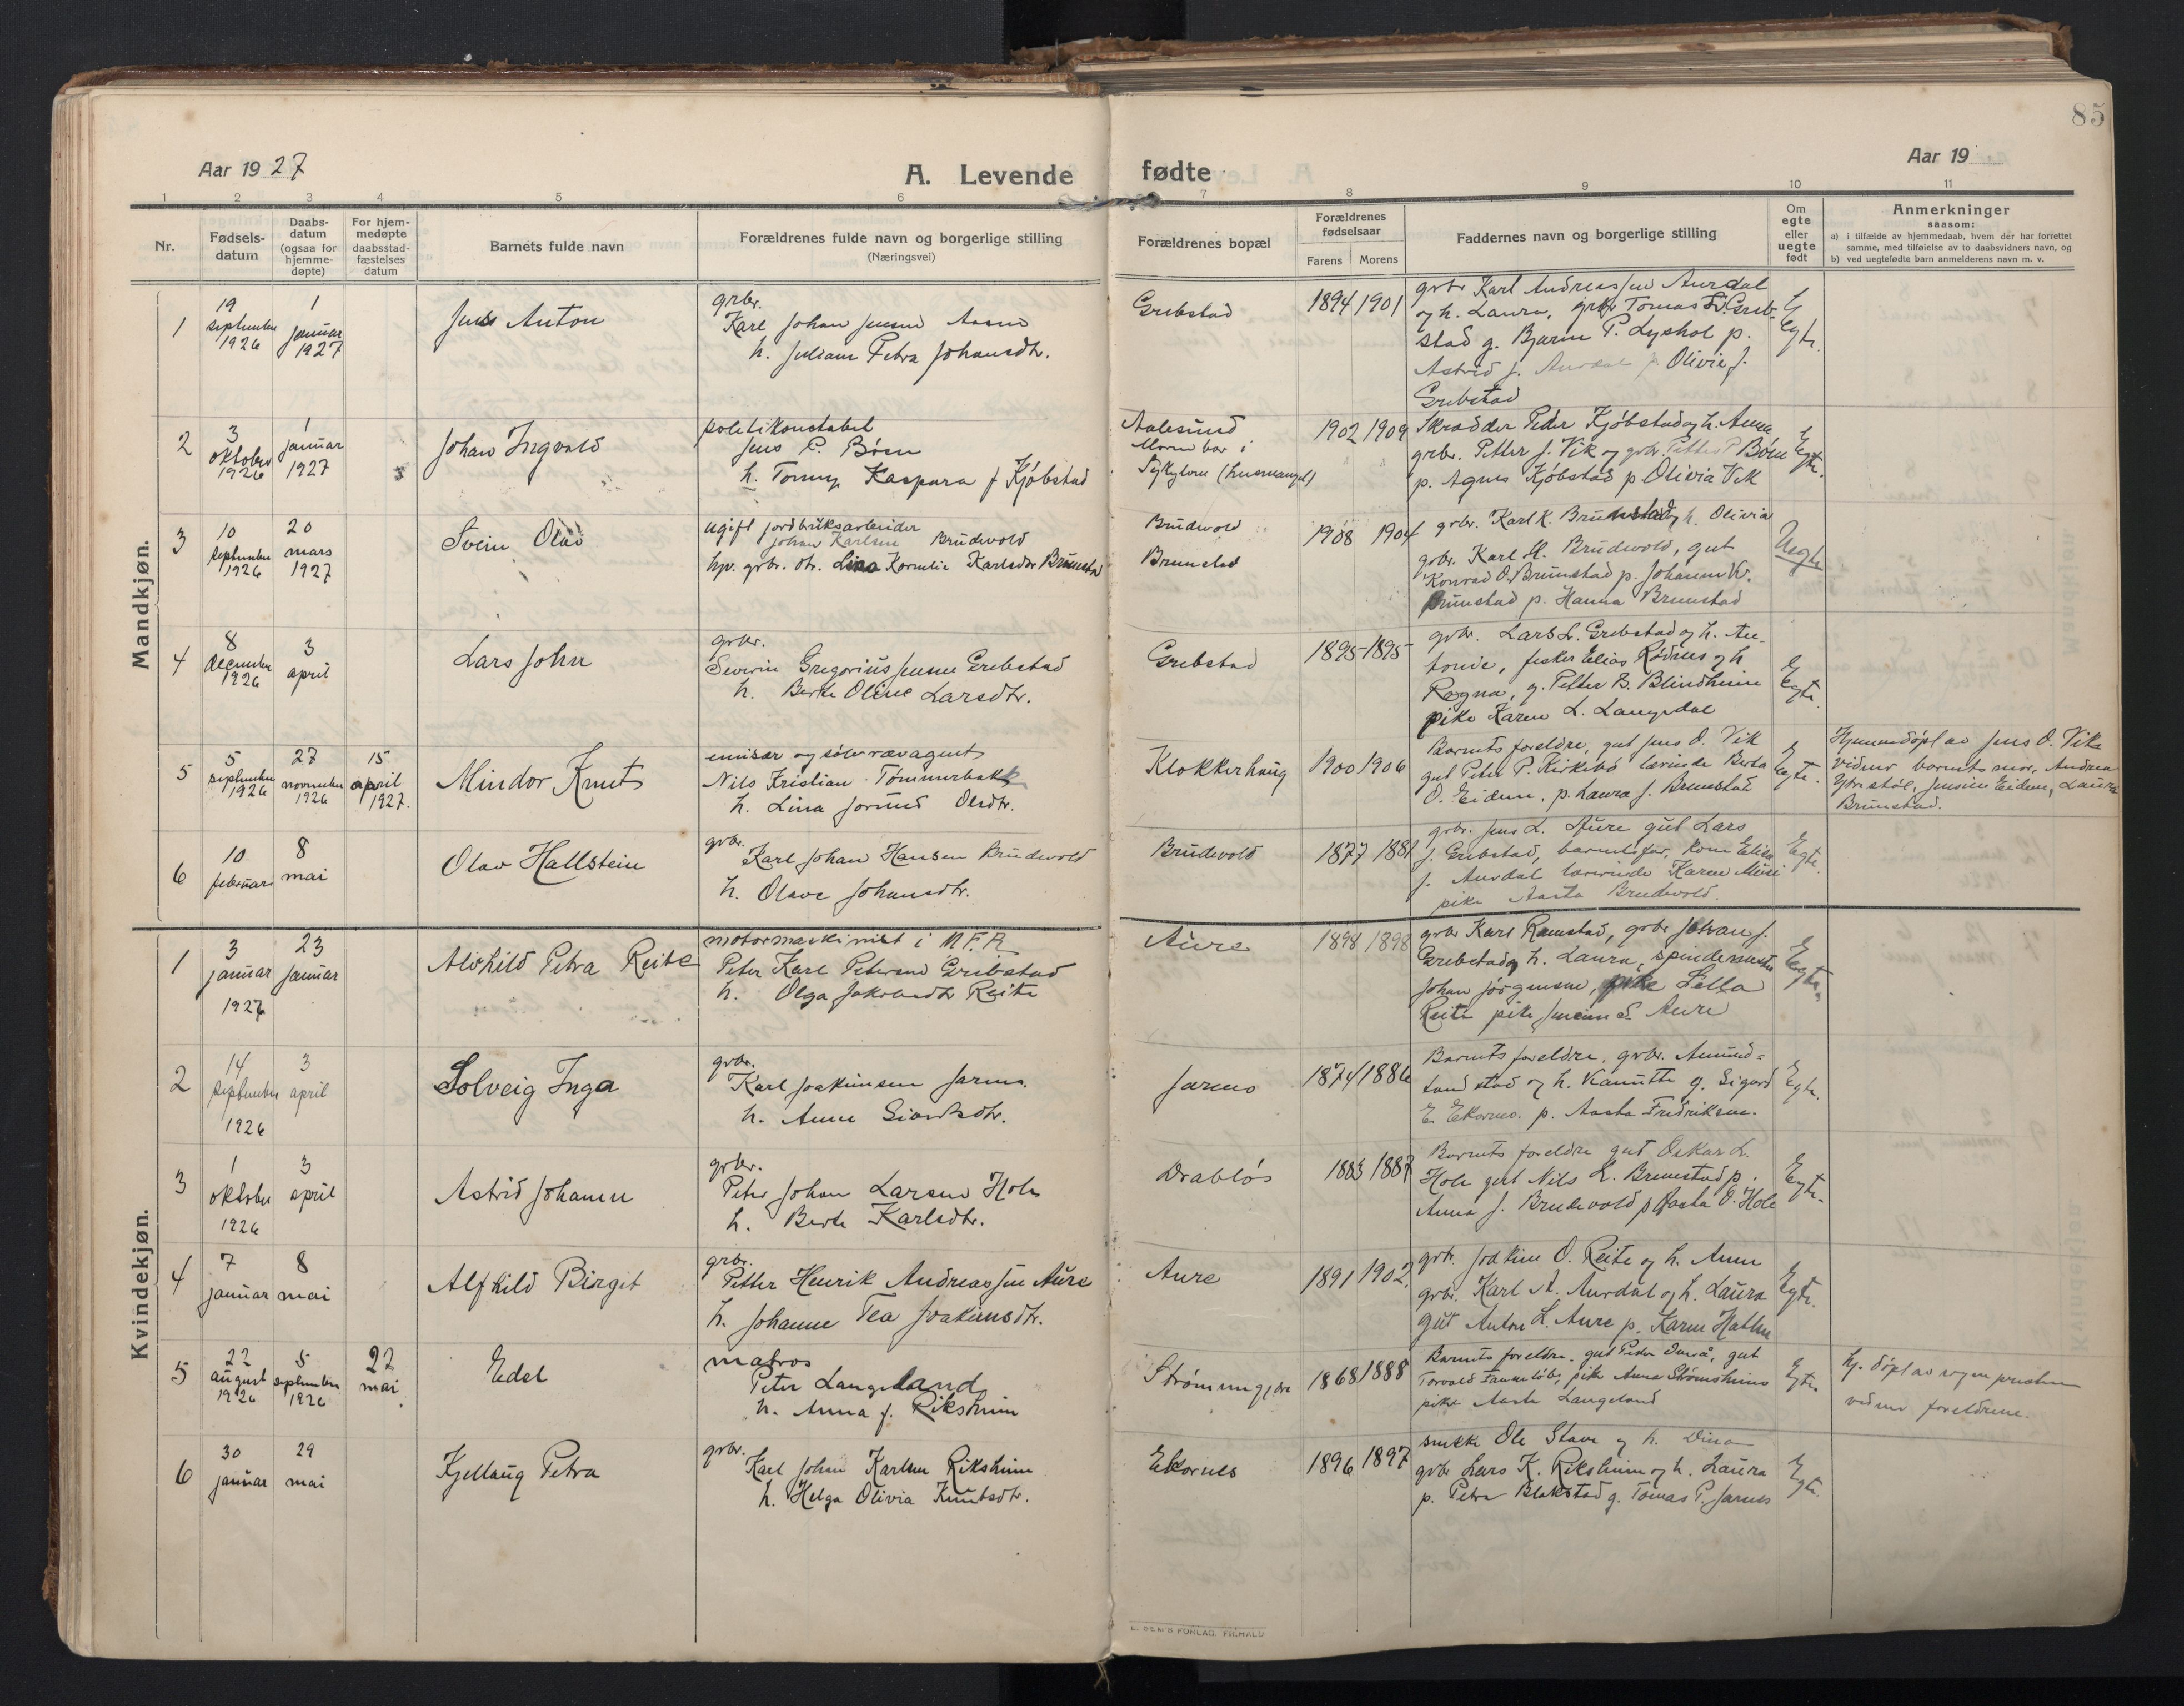 85
Aar 1927
A. Levende fødte
Aar 19
1 2 3 4 5 6 7 8 9 10 11
Nr.
Fødsels-
datum
Daabs-
datum
(ogsaa for
hjemme-
døpte)
For hjem-
medøpte
daabsstad-
fæstelses
datum
Barnets fulde navn
Forældrenes fulde navn og borgerlige stilling
(Næringsvei)
Forældrenes bopæl
Forældrenes
fødselsaar
Farens Morens
Faddernes navn og borgerlige stilling
Om
egte
eller
uegte
født
Anmerkninger
saasom:
a) i tilfælde av hjemmedaab, hvem der har forrettet
samme, med tilføielse av to daabsvidners navn, og
b) ved uegtefødte barn anmelderens navn m. v.
Mandkjøn.
1
19
september
1926
1
januar
1927
Jens Anton
grbr.
Karl Johan Jensen
h. Juliane Petra Johansdtr.
Grebstad
1894 1901
grbr Karl Andreassen Aurdal
og h. Laura, grbr Tomas Greb-
stad g. Bjarne P. Lyshol p.
Astrid J. Aurdal p Olivie J.
Grebstad
Egte.
2
3
oktober
1926
1
januar
1927
Johan Ingvald
politikonstabel
Jens P. Bøen
h. Tomny Kaspara J Kjøbstad
Aalesund
Moren bor i
Sykkylven (husmangel)
1902 1909
Skrædder Peder Kjøbstad og h. Anna
grbr. Petter J. Vik og grbr. Petter P Bøen
p. Agnes Kjøbstad p. Olivia Vik
Egte.
3
10
september
1926
20
mars
1927
Svein Olav
ugift jordbruksarbeider
Johan Karlsen Brudevold
hp. grbr. dtr. Lina Kornelie Karlsdtr Brunstad
Brudevold
Brunstad
1908 1904
grbr. Karl K. Brunstad og h. Olivia
grbr. Karl H. Brudevold, gut
Konrad O. Brunstad p. Johanne K.
Brunstad p. Hanna Brunstad
Uegte
4
8
december
1926
3
april
Lars John
grbr.
Severin Gregorius Jensen Grebstad
h. Berte Oline Larsdtr.
Grebstad
1895 1895
grbr. Lars L. Grebstad og h. An-
tonie, fisker Elias Rødnes og h
Ragna, g. Petter B. Blindheim
pike Karen L. Langedal
Egte.
5
5
september
1926
27
november
1926
15
april
1927.
Mindor Knut
emisær og sølvrævagent
Nils Kristian Tømmerbakk
h. Lina Jorund Olsdtr.
Klokkerhaug
1900 1906
Barnets foreldre, gut Jens O. Vik
gut Peter P. Kirkebø lærinde Berta
O. Eidem, p. Laura J. Brunstad
Egte.
Hjemmedøpt av Jens O. Vik
vidner barnets mor, Andrea
Ytrestøl, Jensine Eidem, Laura
Brunstad.
6
10
februar
8
mai
Olav Hallstein
grbr.
Karl Johan Hansen Brudevold
h. Olave Johansdtr.
Brudevold
1877 1881
grbr. Jens L. Aure gut Lars
J. Grebstad, barnets far, kone Elise
J. Aurdal lærerinde Karen
pike Aasta Brudevold.
Egte.
Kvindekjøn.
1
3
januar
1927
23
januar
Alvhild Petra Reite
motormaskinist i M.F.R
Peter Karl Petersen Grebstad
h. Olga Jakobsdtr Reite
Aure
1898 1898
grbr Karl Ramstad, grbr Johan J.
Grebstad og h. Laura, spindemester
Johan Jørgensen, pike Lella
Reite pike Jensine S. Aure
Egte.
2
14
september
1926
3
april
Solveig Inga
grbr.
Karl Joakimsen Jarnes.
h. Anne Sivertsdtr.
Jarnes
1874 1886
Barnets foreldre, grbr. Amund
stad og h. Kanutte g. Sigurd
E. Ekornes. p. Aasta Fredriksen.
Egte.
3
1
oktober
1926
3
april
Astrid Johanne
grbr.
Peter Johan Larsen Hole
h. Berte Karlsdtr.
Drabløs
1883 1887
Barnets foreldre gut Oskar L.
Hole gut Nils K. Brunstad p.
Anna J. Brudevold p Aasta O. Hole
Egte.
4
7
januar
8
mai
Alfhild Birgit
grbr.
Petter Henrik Andreassen Aure
h. Johanne Tea Joakimsdtr.
Aure
1891 1902.
grbr. Joakim O. Reite og h. Anne
grbr. Karl A. Aurdal og h. Laura
gut Anton L. Aure p. Karen Hatlen
Egte.
5
22
august
1926
5
september
1926
22
mai
Edel
matros
Peter Langeland
h. Anna J. Riksheim
Strømmegjære
1868 1888
Barnets foreldre. gut Peder, gut
Torvald Tandeløb, pike Anna Strømsheim
pike Aasta Langeland
Egte.
hj. døpt av sogn presten
vidner foreldrene.
6
30
januar
29
mai
Kjellaug Petra
grbr.
Karl Johan Karlsen Riksheim
h. Helga Olivia Knutsdtr.
Ekornes
1896 1897
snekke Ole Stave og h. Dina
grbr Lars K. Riksheim og h. Laura
p. Petra Blakstad g. Tomas P. Jarnes
Egte.
E. SEM'S FORLAG. FR.HALD